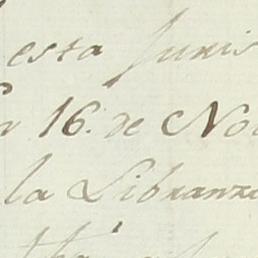 esta Juris
16. de No
la Libranza